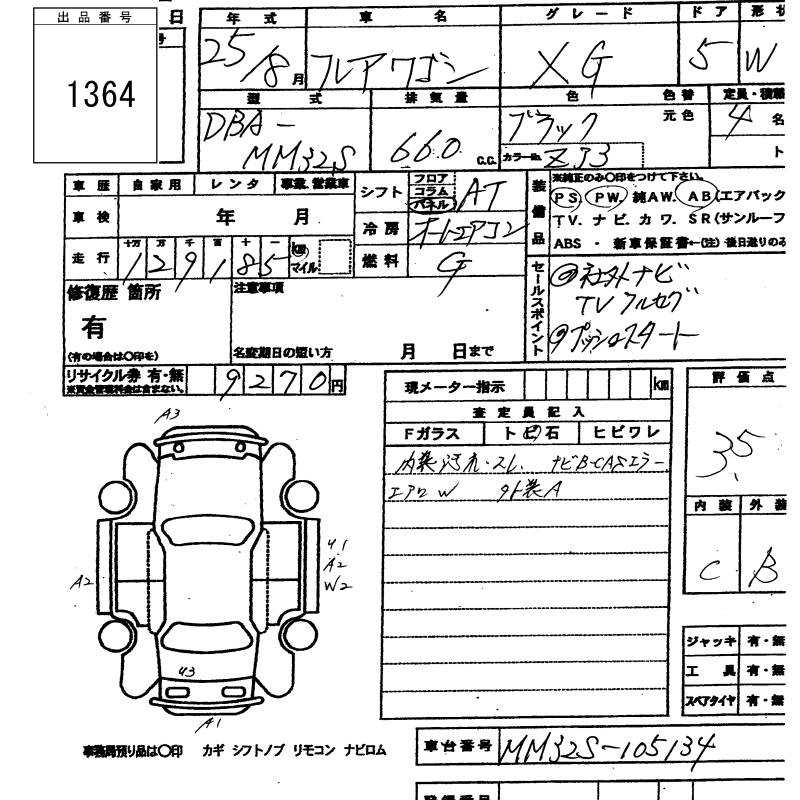 出品番号
1364
日
年式 車名 グレード ドア 形状
25/8月 フレアワゴン XG 5 W
型式 排気量 色 色替 定員・積載
DBA-MM32S 660 c.c. ブラック 元色 4名
カラーNo. ZJ3 ト
車歴 自家用 レンタ 事業.営業車
車検 年 月
走行 十万 万 千 百 十 一 km マイル
129185
シフト フロア コラム パネル AT
冷房 オートエアコン
燃料 G
装備品 ※純正のみ〇印をつけて下さい。
PS. PW. 純AW. AB(エアバック
TV. ナビ. カワ. SR(サンルーフ
ABS・新車保証書←(注) 後日送りのみ
セールスポイント
◎社外ナビ
TV フルセグ
◎プッシュスタート
修復歴 箇所
有
(有の場合は〇印を)
注意事項
名変期日の短い方 月 日まで
リサイクル券 有・無
※資金管理料金は含まない。
9270円
現メーター指示 km
査定員記入
Fガラス ト ビ 石 ヒビワレ
内装汚れ・スレ. ナビB-CASエラー
エアロW 外装A
評価点
3.5
内装 外装
C B
A3
A2
U1
A2
W2
U3
A1
ジャッキ 有・無
工具 有・無
スペアタイヤ 有・無
事務局預り品は〇印 カギ シフトノブ リモコン ナビロム
車台番号 MM32S-105134